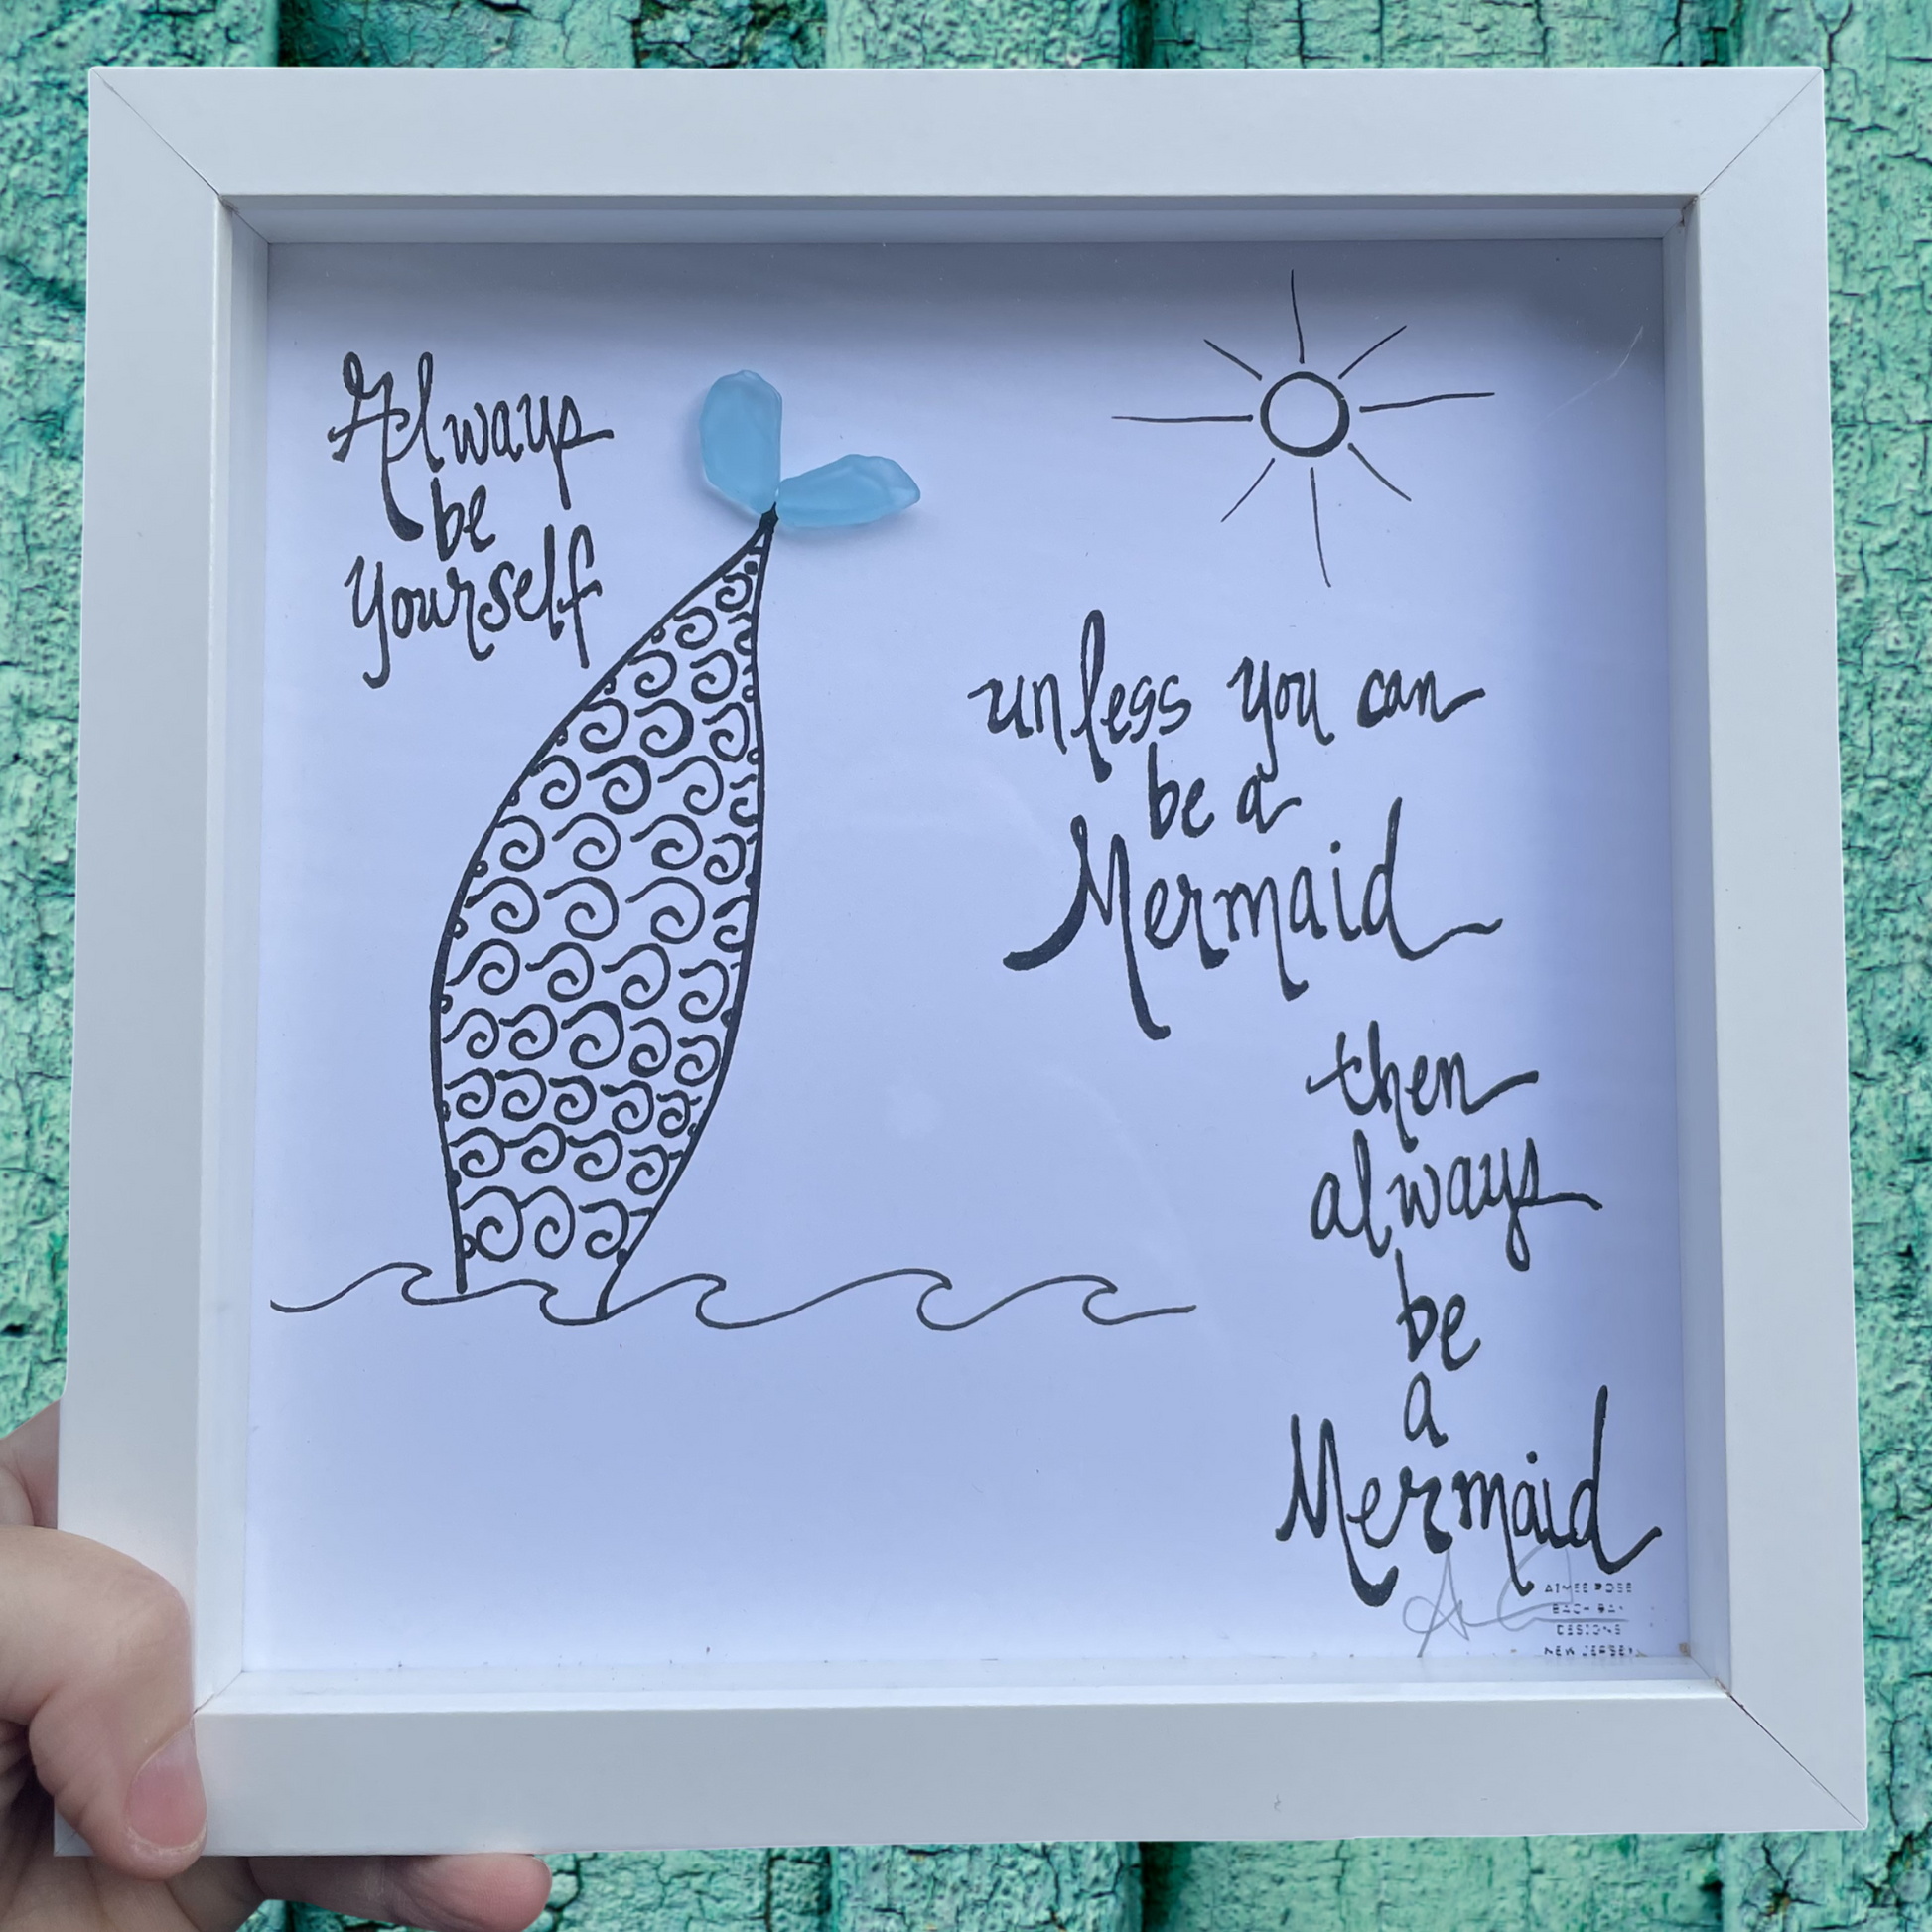 Always
be
yourself
unless you can
be a
Mermaid
then
always
be
a
Mermaid
AIMEE ROSE
BACK BAY
DESIGNS
NEW JERSEY